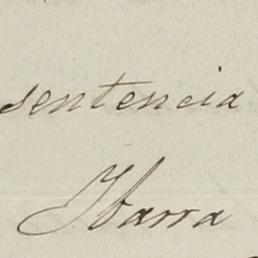 sentencia
Ibarra